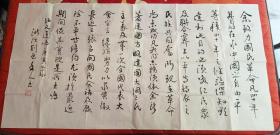 余致力國民革命凡四十年
其目的在求中國之自由平
等積四十年之經驗深知欲
達到此目的必須喚起民眾
及聯合世界上以平等待我之
民族共同奮鬥現在革命
尚未成功凡我同志務須依照余所
著建國方略建國大綱三民
主義及第一次全國代表大
會宣言繼續努力以求貫徹
最近主張開國民會議及廢
除不平等條約尤須於最短
期間促其實現是所至囑